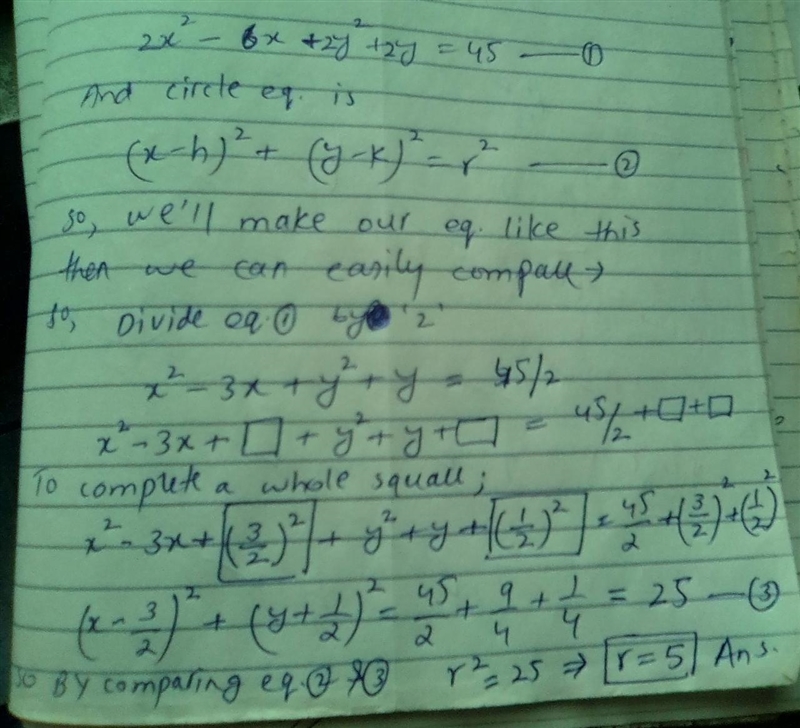 2x² - 6x + 2y² + 2y = 45 —— ①
And circle eq. is
(x-h)² + (y-k)² = r² —— ②
so, we'll make our eq. like this
then we can easily compare →
so, Divide eq.① by '2'
x² - 3x + y² + y = 45/2
x² - 3x + □ + y² + y + □ = 45/2 + □ + □
To complete a whole square;
x² - 3x + [(3/2)²] + y² + y + [(1/2)²] = 45/2 + (3/2)² + (1/2)²
(x - 3/2)² + (y + 1/2)² = 45/2 + 9/4 + 1/4 = 25 — ③
so By comparing eq.② & ③ r² = 25 ⇒ r = 5 Ans.